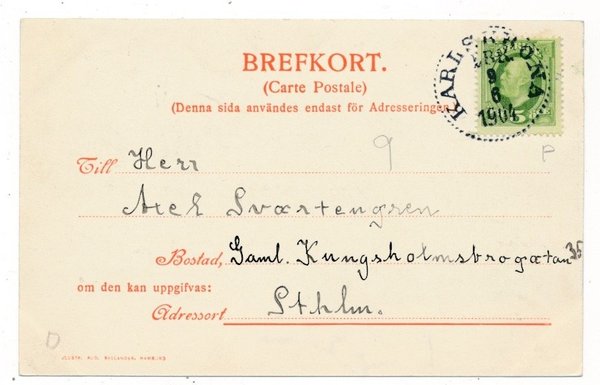 BREFKORT.
(Carte Postale)
(Denna sida användes endast för Adresseringen
KARLSKRONA
LBR.
9
6
1904
5
9
P
Till Herr
Axel Svartengren
Bostad, Gaml. Kungsholmsbrogatan 35
om den kan uppgifvas:
Adressort Sthlm.
D